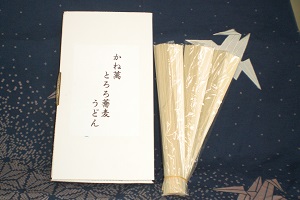 かね萬
とろろ蕎麦
うどん